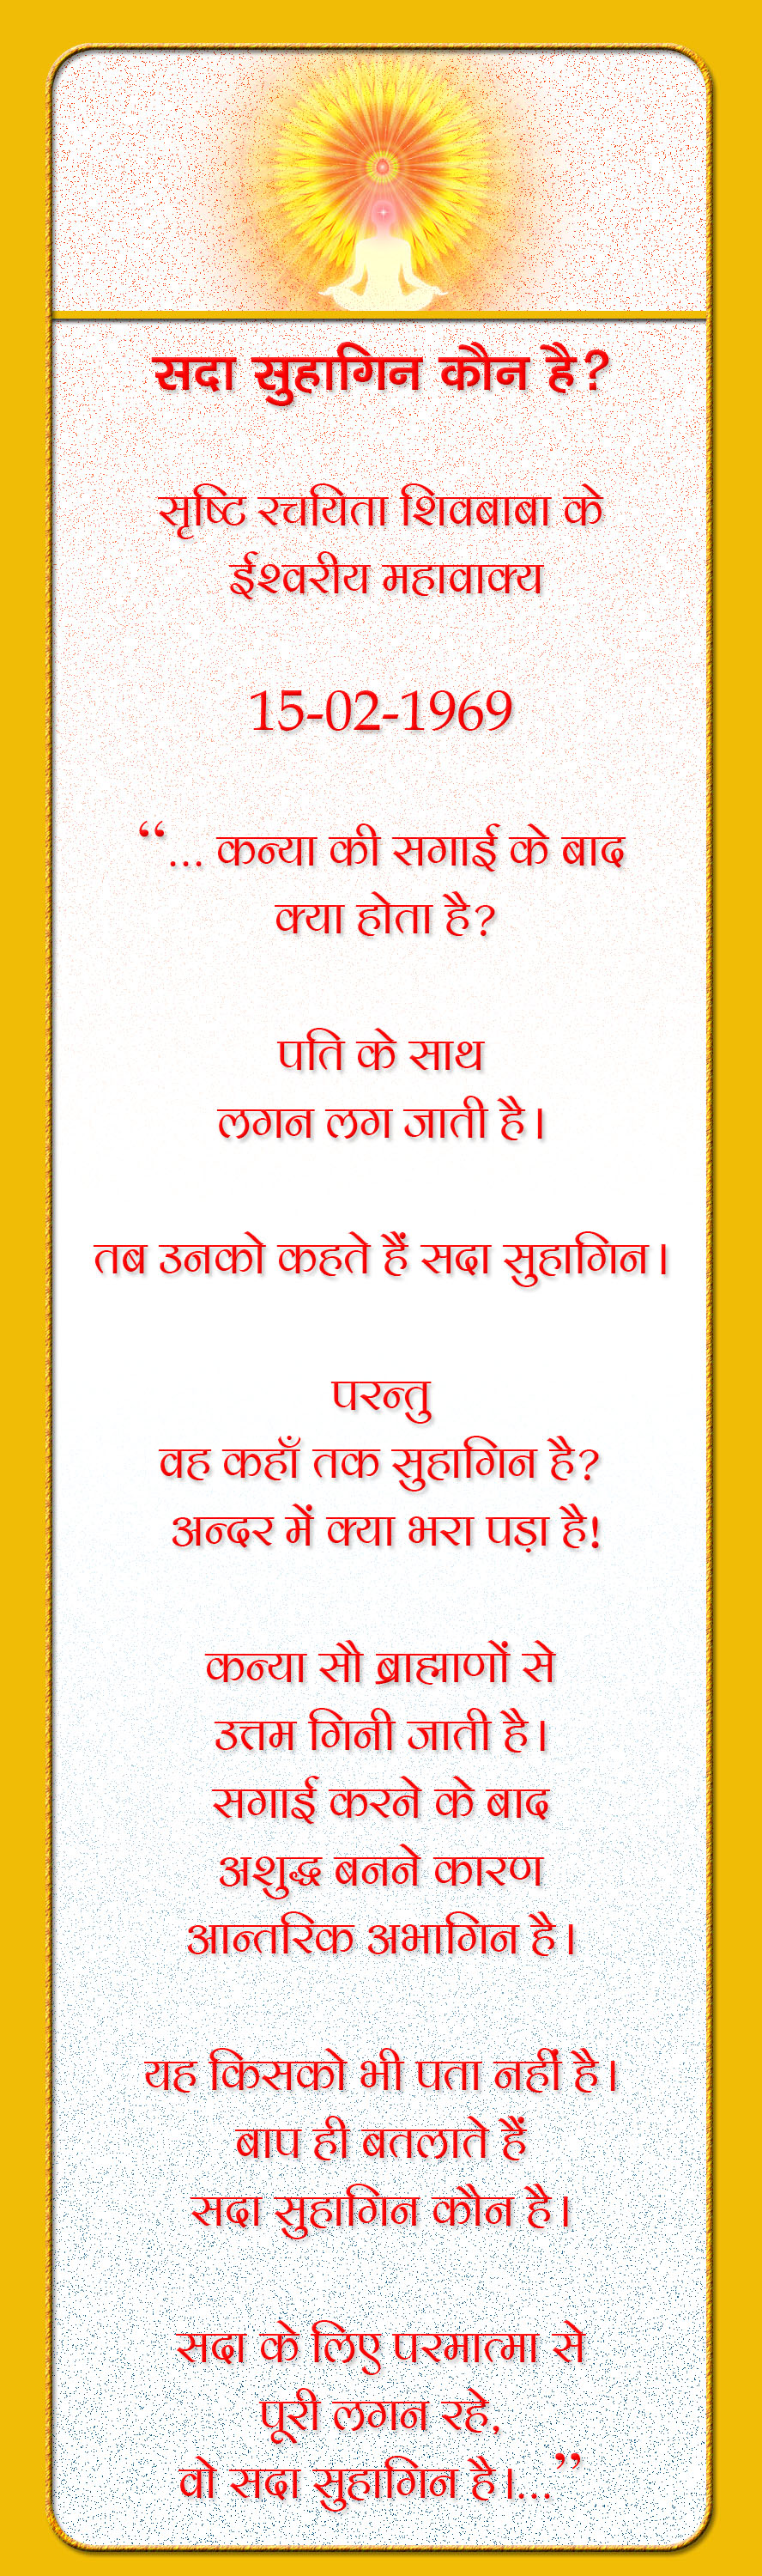 सदा सुहागिन कौन है?
सृष्टि रचयिता शिवबाबा के
ईश्वरीय महावाक्य
15-02-1969
“... कन्या की सगाई के बाद
क्या होता है?
पति के साथ
लगन लग जाती है।
तब उनको कहते हैं सदा सुहागिन।
परन्तु
वह कहाँ तक सुहागिन है?
अन्दर में क्या भरा पड़ा है!
कन्या सौ ब्राह्माणों से
उत्तम गिनी जाती है।
सगाई करने के बाद
अशुद्ध बनने कारण
आन्तरिक अभागिन है।
यह किसको भी पता नहीं है।
बाप ही बतलाते हैं
सदा सुहागिन कौन है।
सदा के लिए परमात्मा से
पूरी लगन रहे,
वो सदा सुहागिन है।...”